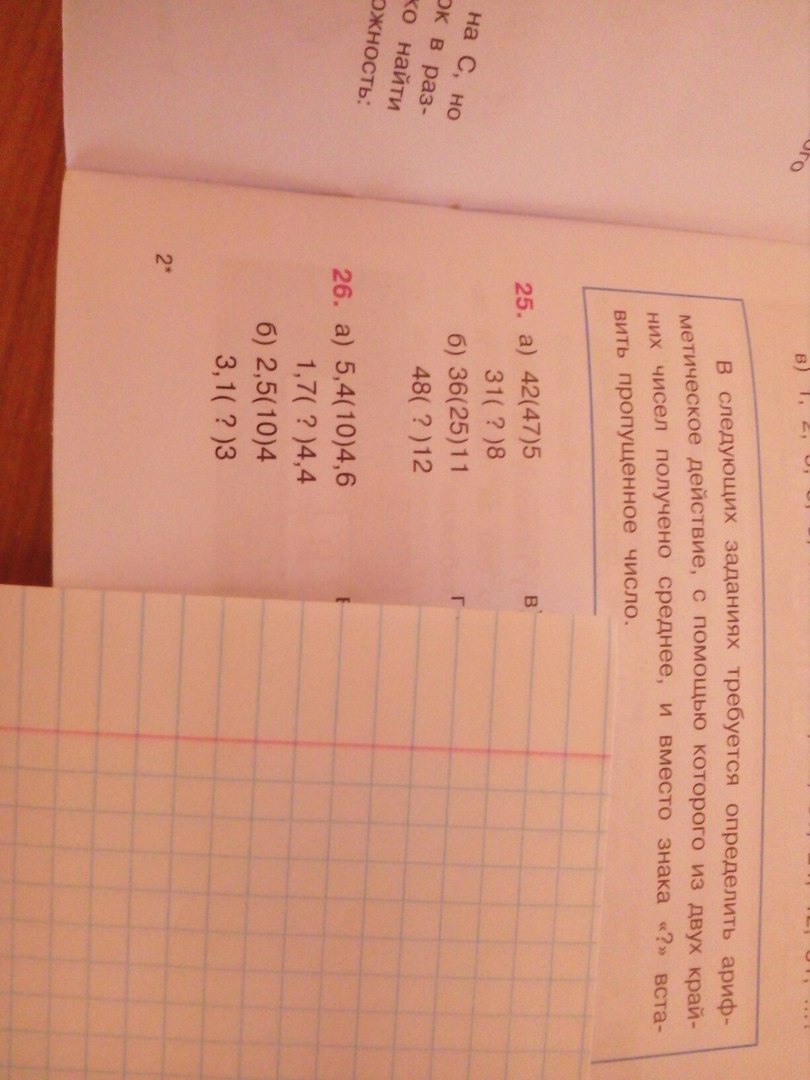 на С, но
ок в раз-
ко найти
ожность:
ого
В следующих заданиях требуется определить ариф-
метическое действие, с помощью которого из двух край-
них чисел получено среднее, и вместо знака «?» вста-
вить пропущенное число.
25. а) 42(47)5
31( ? )8
б) 36(25)11
48( ? )12
в)
г
26. а) 5,4(10)4,6
1,7( ? )4,4
б) 2,5(10)4
3,1( ? )3
2*